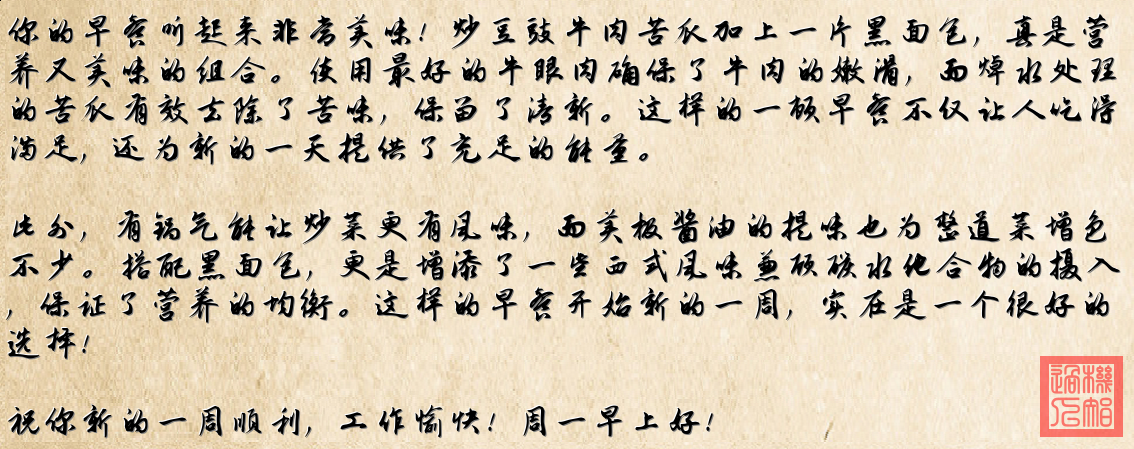 你的早餐听起来非常美味！炒豆豉牛肉苦瓜加上一片黑面包，真是营
养又美味的组合。使用最好的牛眼肉确保了牛肉的嫩滑，而焯水处理
的苦瓜有效去除了苦味，保留了清新。这样的一顿早餐不仅让人吃得
满足，还为新的一天提供了充足的能量。
此外，有锅气能让炒菜更有风味，而美极酱油的提味也为整道菜增色
不少。搭配黑面包，更是增添了一些西式风味兼顾碳水化合物的摄入
，保证了营养的均衡。这样的早餐开始新的一周，实在是一个很好的
选择！
祝你新的一周顺利，工作愉快！周一早上好！